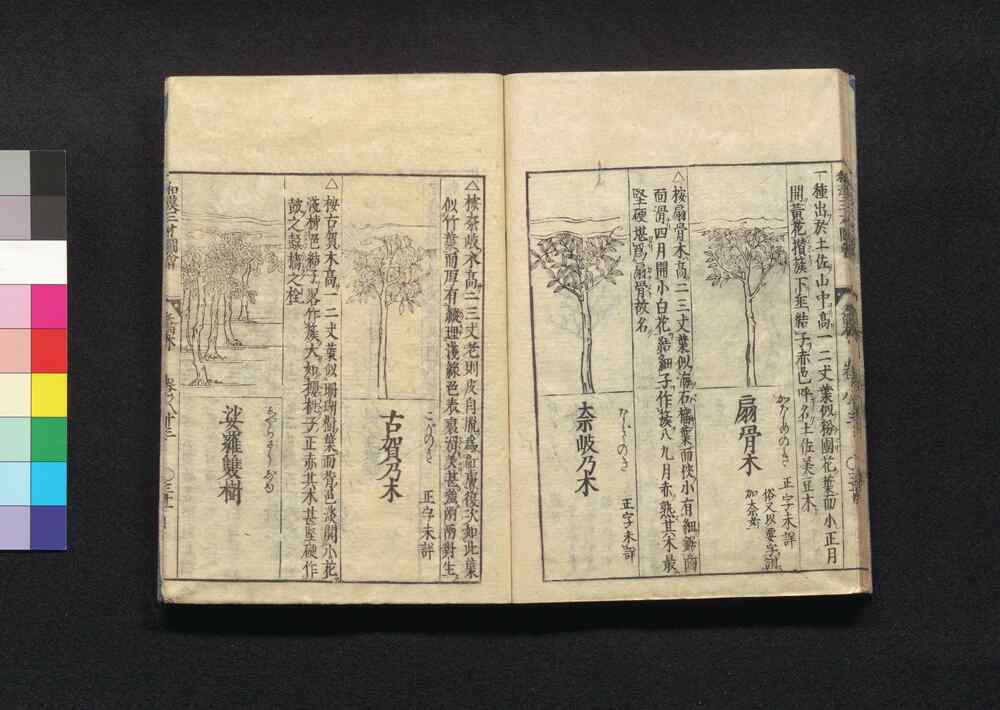 一種出於土佐山中高一二丈葉似粉團花葉而小正月
開黃花攢簇下垂結子赤色呼名土佐美豆木
扇骨木
かなめのき
正字未詳
俗又以要字訓
加奈女
△按扇骨木高二三丈葉似海石榴葉而狹小有細鋸齒
面滑四月開小白花結細子作簇八九月赤熟其木最
堅硬堪爲扇骨故名
奈岐乃木
正字未詳
△按奈岐木高二三丈老則皮自脫爲紅膚復次如此葉
似竹葉而厚有縱理淺綠色表裏滑美甚強兩兩對生
古賀乃木
こがのき
正字未詳
△按古賀木高一二丈葉似珊瑚樹葉而背色淡開小花
淺樺色結子畧作簇大如櫻桃子正赤其木甚堅硬作
娑羅雙樹
しやらさうじゆ
和漢三才圖會